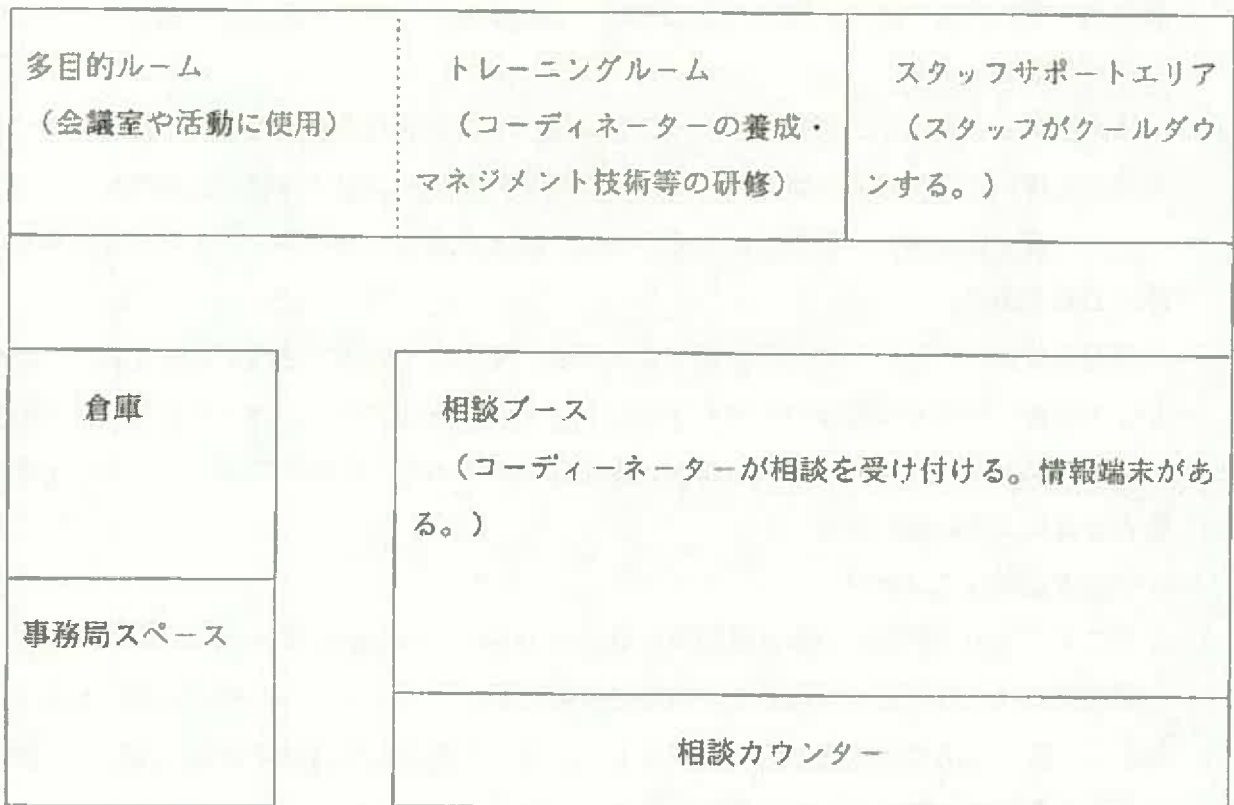 多目的ルーム
（会議室や活動に使用）
トレーニングルーム
（コーディネーターの養成・
マネジメント技術等の研修）
スタッフサポートエリア
（スタッフがクールダウ
ンする。）
倉庫
相談ブース
（コーディーネーターが相談を受け付ける。情報端末があ
る。）
事務局スペース
相談カウンター